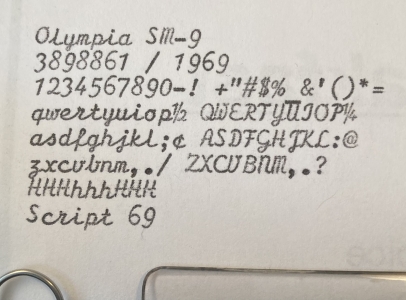 Olympia SM-9
3898861 / 1969
1234567890-! +"#$% &'()*=
qwertyuiop½ QWERTYUIOP¼
asdfghjkl;¢ ASDFGHJKL:@
zxcvbnm,./ ZXCVBNM,.?
HHHhhhHHH
Script 69